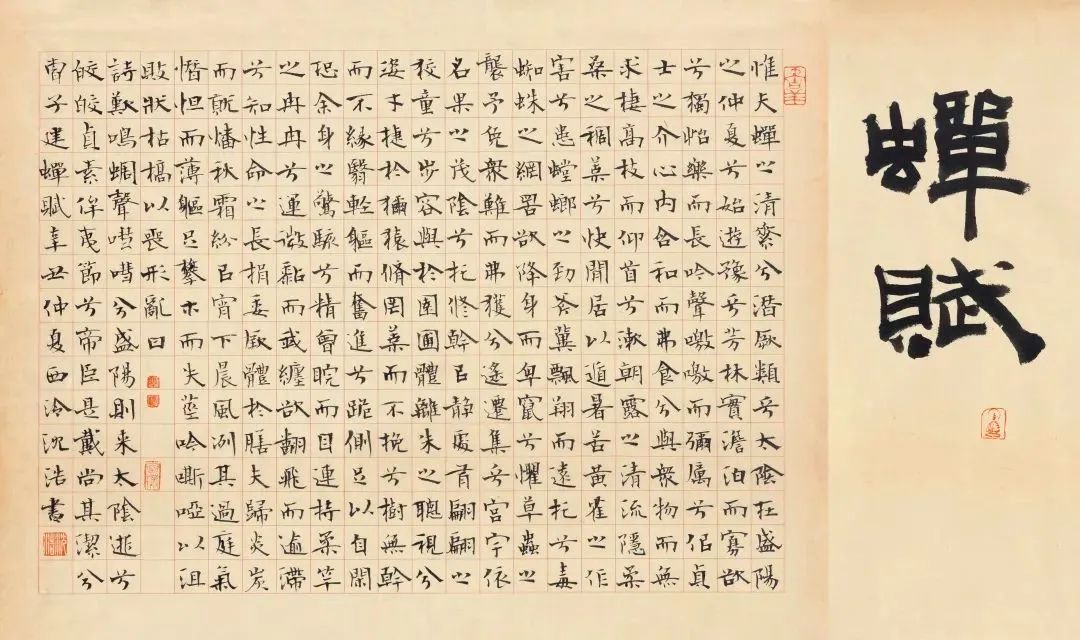 蟬賦
惟夫蟬之清素兮潛厥類乎太陰在盛陽
之仲夏兮始遊豫乎芳林實澹泊而寡欲
兮獨怡樂而長吟聲噭噭而彌厲兮侣貞
士之介心內含和而弗食兮與衆物而無
求棲高枝而仰首兮漱朝露之清流隱柔
桑之稠葉兮快閒居以遁暑苦黃雀之作
害兮患螳螂之勁斧冀飄翔而遠托兮毒
蜘蛛之網罟欲降身而卑竄兮懼草蟲之
襲予免衆難而弗獲兮遙遷集乎宮宇依
名果之茂陰兮托修幹以靜處有翩翩之
狡童兮步容與於園圃體離朱之聰視兮
姿才捷於獼猿條罔葉而不挽兮樹無幹
而不緣翳輕軀而奮進兮跪側足以自閑
恐余身之驚駭兮精曾睆而目連持柔竿
之冉冉兮運微黏而我纏欲翻飛而逾滯
兮知性命之長捐委厥體於膳夫歸炎炭
而就燔秋霜紛以宵下晨風冽其過庭氣
憯怛而薄軀足攀木而失莖吟嘶啞以沮
敗狀枯槁以喪形亂曰
詩歎鳴蜩聲嘒嘒兮盛陽則來太陰逝兮
皎皎貞素侔夷節兮帝臣是戴尚其潔兮
曹子建蟬賦辛丑仲夏西泠沈浩書